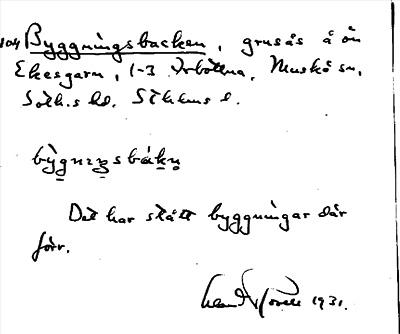 104 Byggningsbacken, grusås å ön
Ekesgarn, 1-3 Arbottna, Muskö sn,
Soth.s hd. Sthlms l.
bỳgnɪŋsbákn̥
Det har stått byggningar där
förr.
1931.